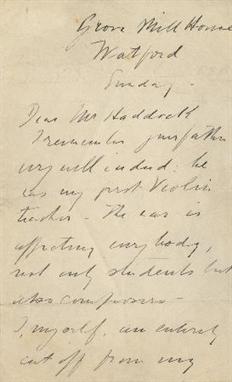 Grove Mill House
Watford
Sunday -
Dear Mr Haddock
I remember your father
very well indeed: he
was my first Violin
teacher - The war is
affecting everybody,
not only students but
also composers -
I, myself, am entirely
cut off from my